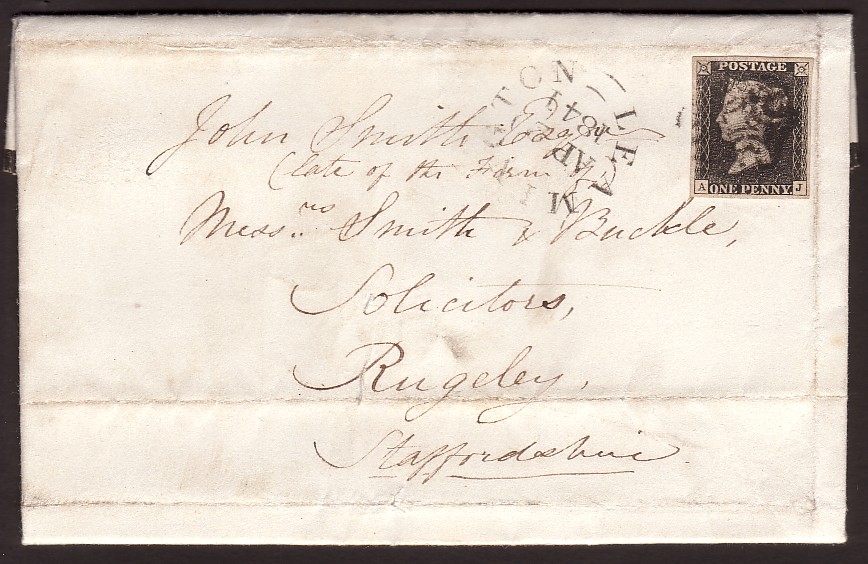 John Smith Esqre
(late of the Firm of
Messrs Smith & Buckle,
Solicitors,
Rugeley,
Staffordshire
LEAMINGTON
AP
184
POSTAGE
A ONE PENNY. J